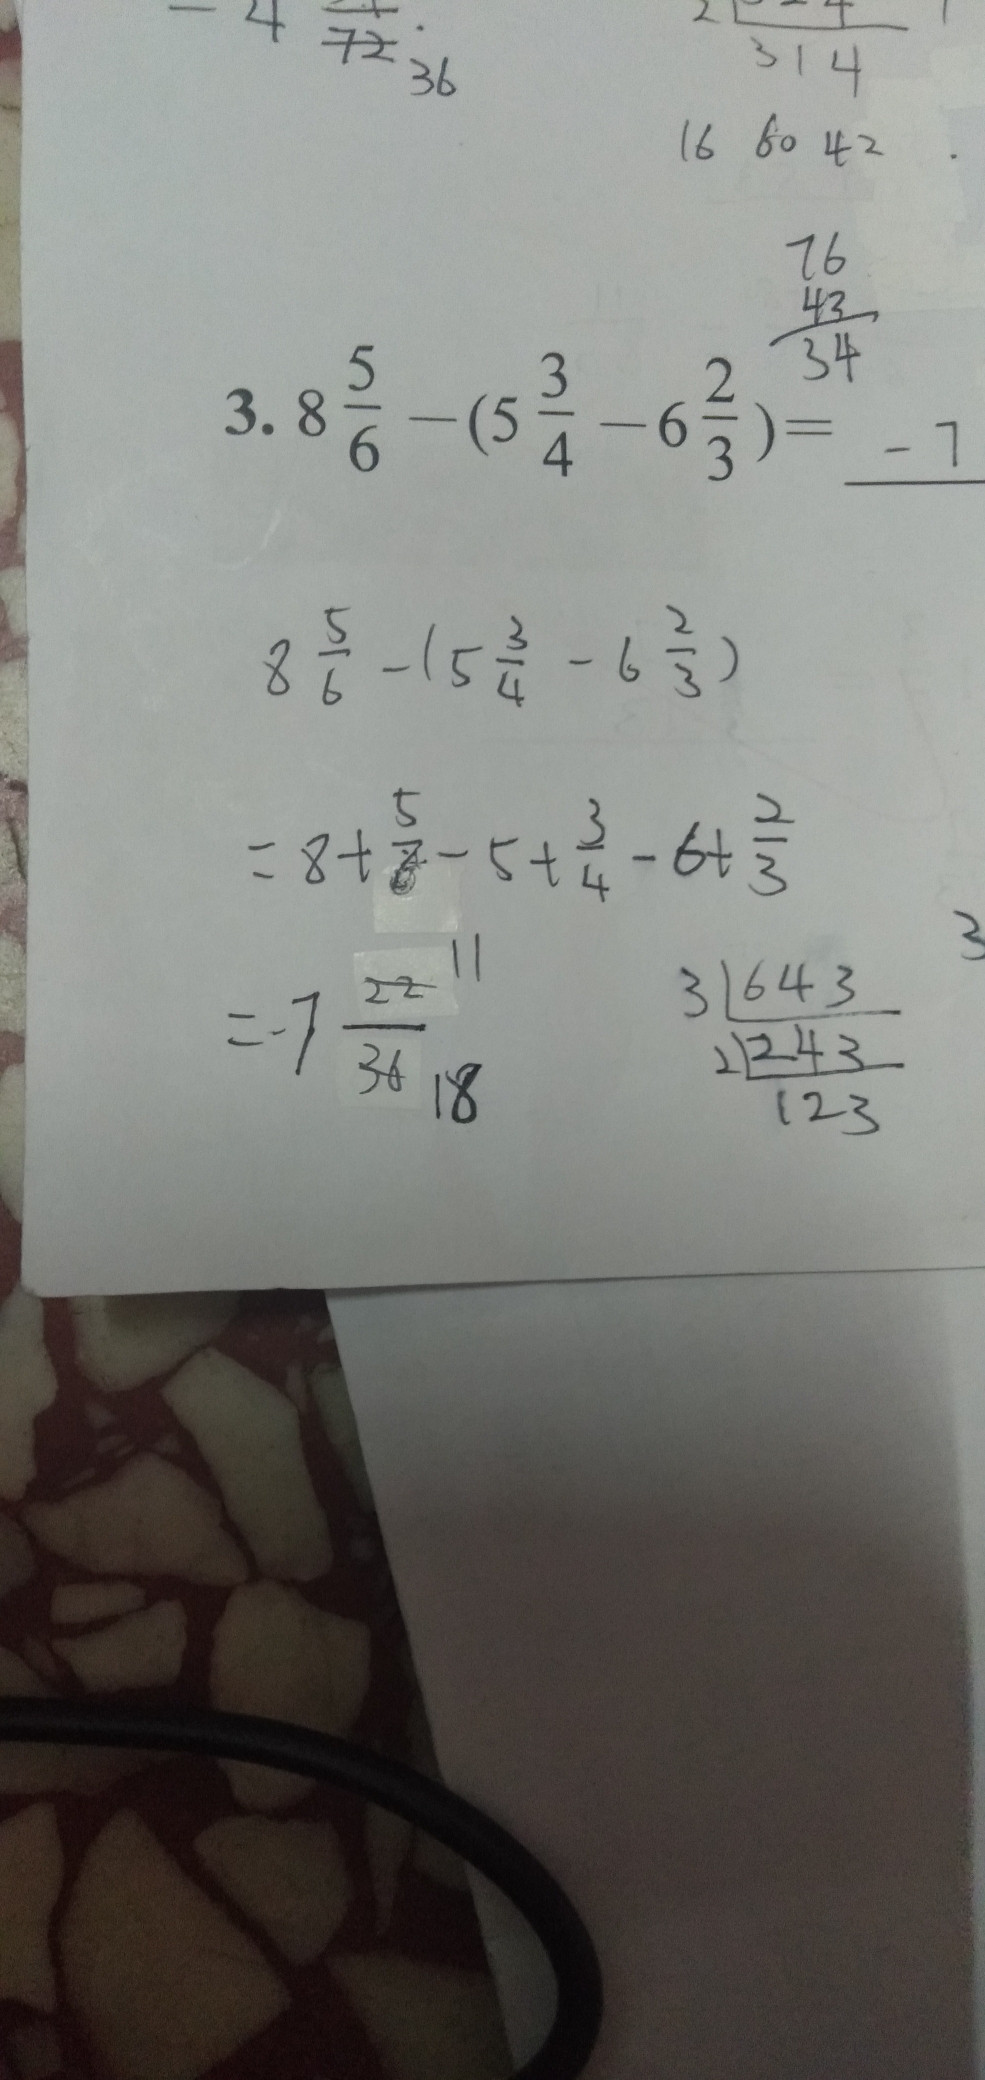 - 4 72 36
314
16 60 42
76
43
34
3. 8 5/6 - (5 3/4 - 6 2/3) = -7
8 5/6 - (5 3/4 - 6 2/3)
= 8 + 5/6 - 5 + 3/4 - 6 + 2/3
= -7 22/36 11 18
3 643
2 243
123
3